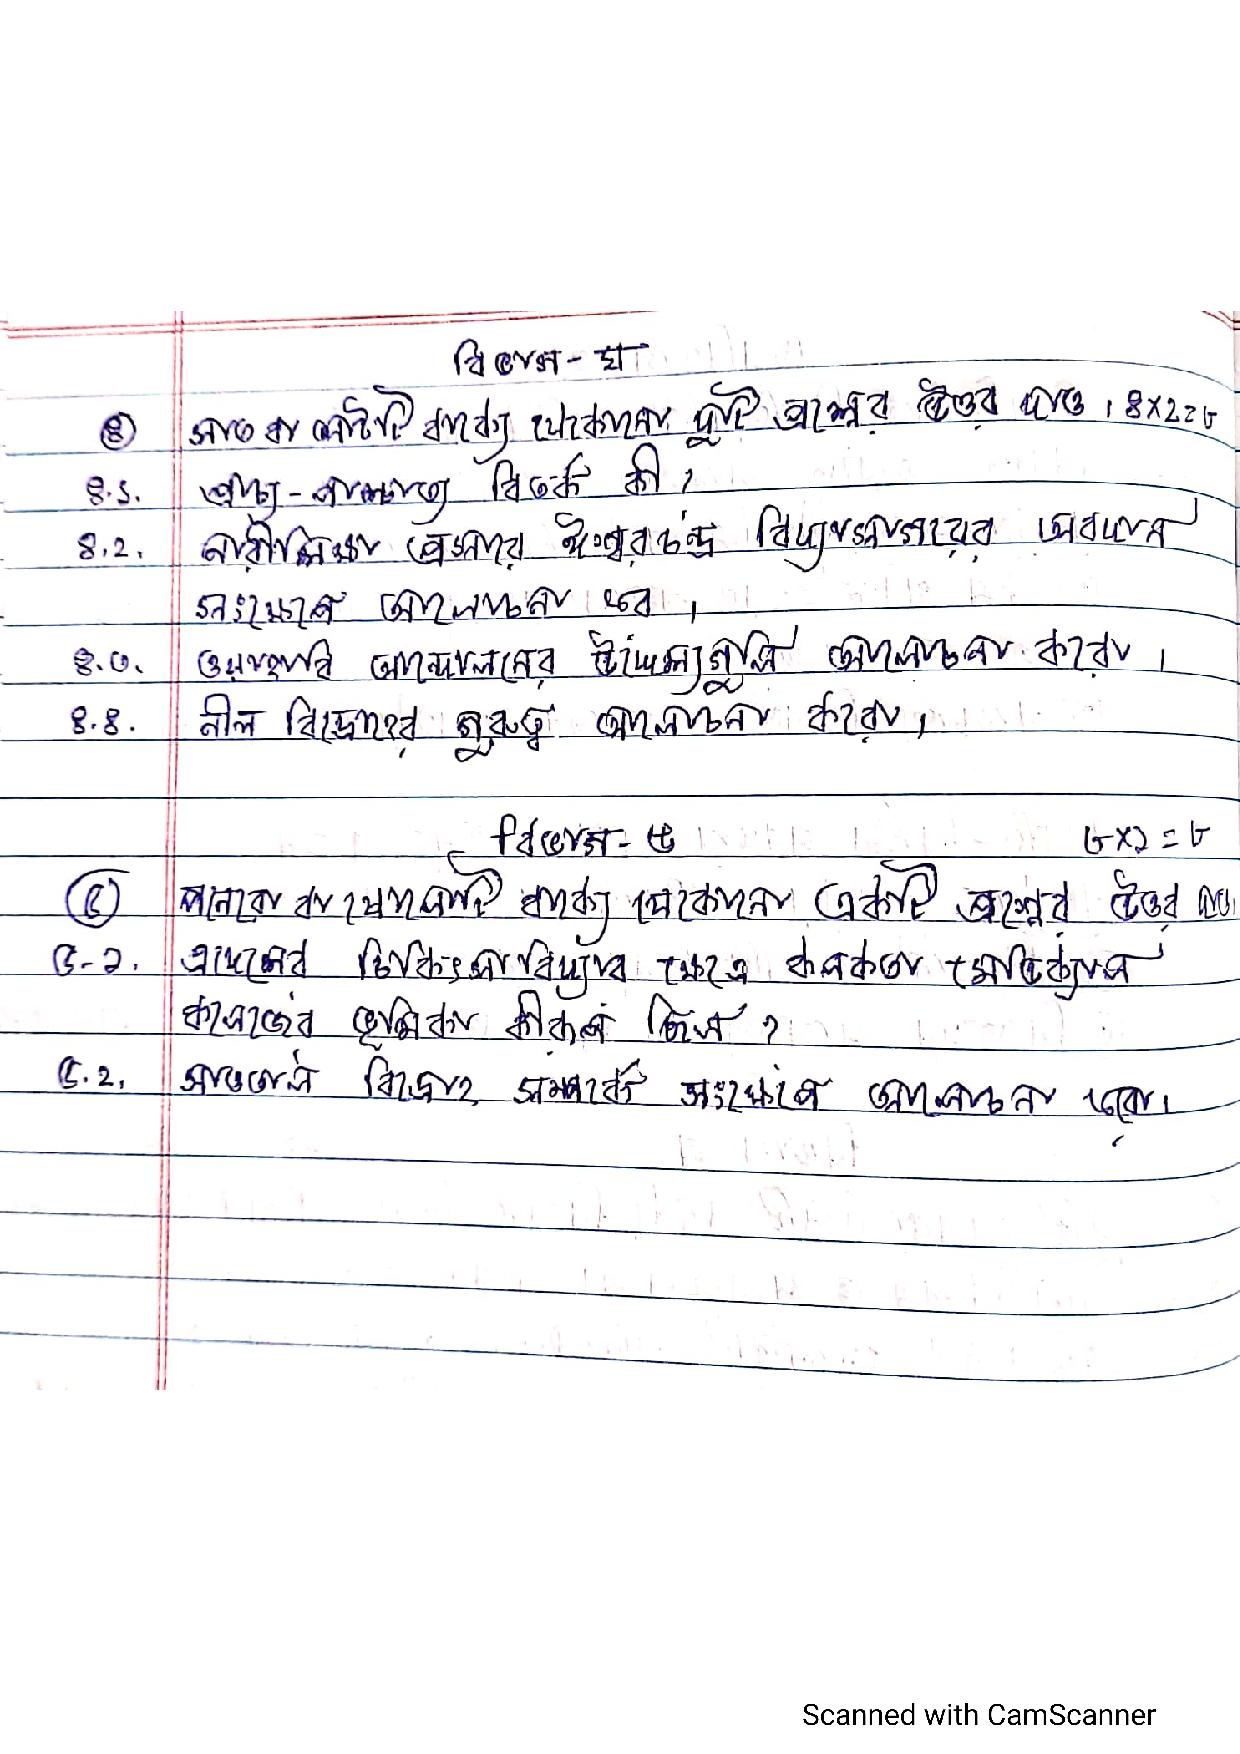 বিভাগ - ঘ
৪ সাত বা আটটি বাক্যে যেকোনো দুটি প্রশ্নের উত্তর দাও । ৪×২=৮
৪.১. প্রাচ্য - পাশ্চাত্য বিতর্ক কী ?
৪.২. নারীশিক্ষা প্রসারে ঈশ্বরচন্দ্র বিদ্যাসাগরের অবদান
সংক্ষেপে আলোচনা কর ।
৪.৩. ওয়াহাবি আন্দোলনের উদ্দেশ্যগুলি আলোচনা করো ।
৪.৪. নীল বিদ্রোহের গুরুত্ব আলোচনা করো ।
বিভাগ - ঙ ৮×১=৮
৫ পনেরো বা ষোলোটি বাক্যে যেকোনো একটি প্রশ্নের উত্তর দাও।
৫.১. এদেশের চিকিৎসাবিদ্যার ক্ষেত্রে কলকাতা মেডিক্যাল
কলেজের ভূমিকা কীরূপ ছিল ?
৫.২. সাঁওতাল বিদ্রোহ সম্পর্কে সংক্ষেপে আলোচনা করো।
Scanned with CamScanner